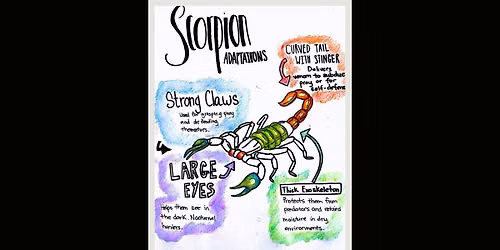 Scorpion
ADAPTATIONS
CURVED TAIL
WITH STINGER
Delivers
venom to subdue
prey or for
self-defense
Strong Claws
Used for grasping prey
and defending
themselves.
LARGE
EYES
Helps them see in
the dark. Nocturnal
hunters.
Thick Exoskeleton
Protects them from
predators and retains
moisture in dry
environments.